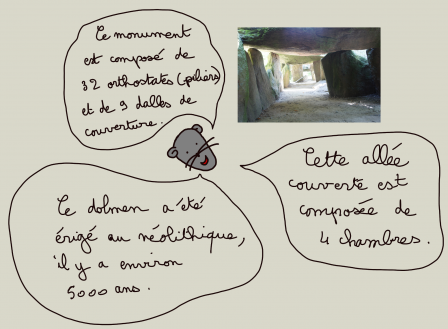 Ce monument
est composé de
32 orthostates (piliers)
et de 9 dalles de
couverture.
Cette allée
couverte est
composée de
4 chambres.
Ce dolmen a été
érigé au néolithique,
il y a environ
5000 ans.